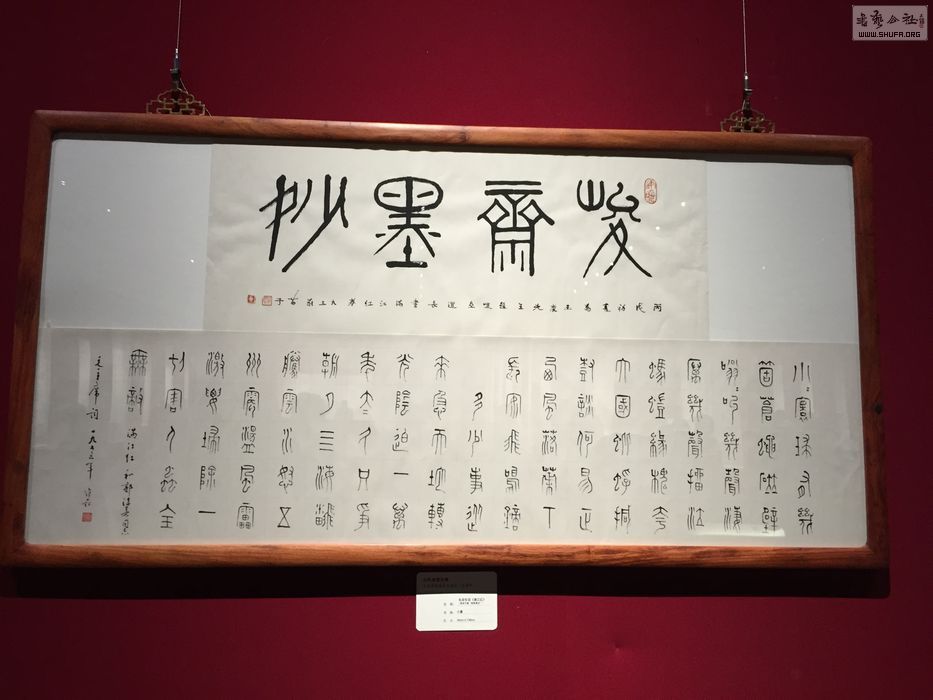 峻齋墨抄
小小寰球有幾
箇蒼蠅碰壁
嗡嗡叫幾聲淒
厲幾聲抽泣
螞蟻緣槐夸
大國蚍蜉撼
樹談何易正
西風落葉下
長安飛鳴鏑
多少事從
來急天地轉
光陰迫一萬
年太久只爭
朝夕四海翻
騰雲水怒五
州震盪風雷
激要掃除一
切害人蟲全
無敵
滿江紅 和郭沫若同志
毛主席詞 一九七三年
書藝公社
WWW.SHUFA.ORG